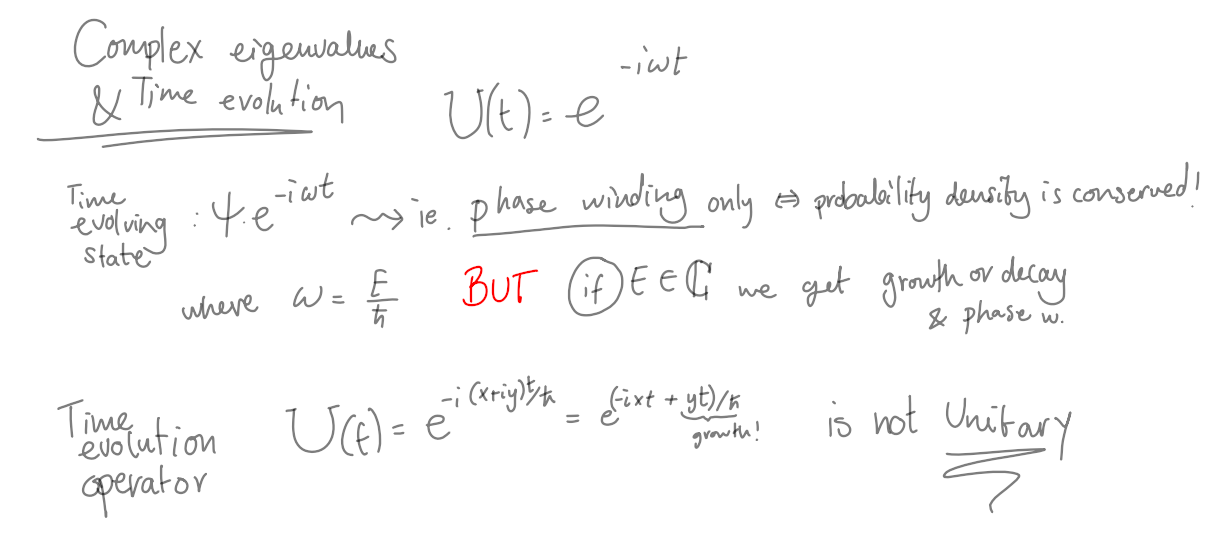 Complex eigenvalues
& Time evolution
U(t) = e^{-iωt}
Time
evolving
state
: ψ.e^{-iωt} ⇝ ie. phase winding only ⇔ probability density is conserved!
where ω = E/ħ BUT if E ∈ ℂ we get growth or decay
& phase w.
Time
evolution
operator
U(t) = e^{-i(x+iy)t/ħ} = e^{(-ixt + yt)/ħ} is not Unitary
growth!